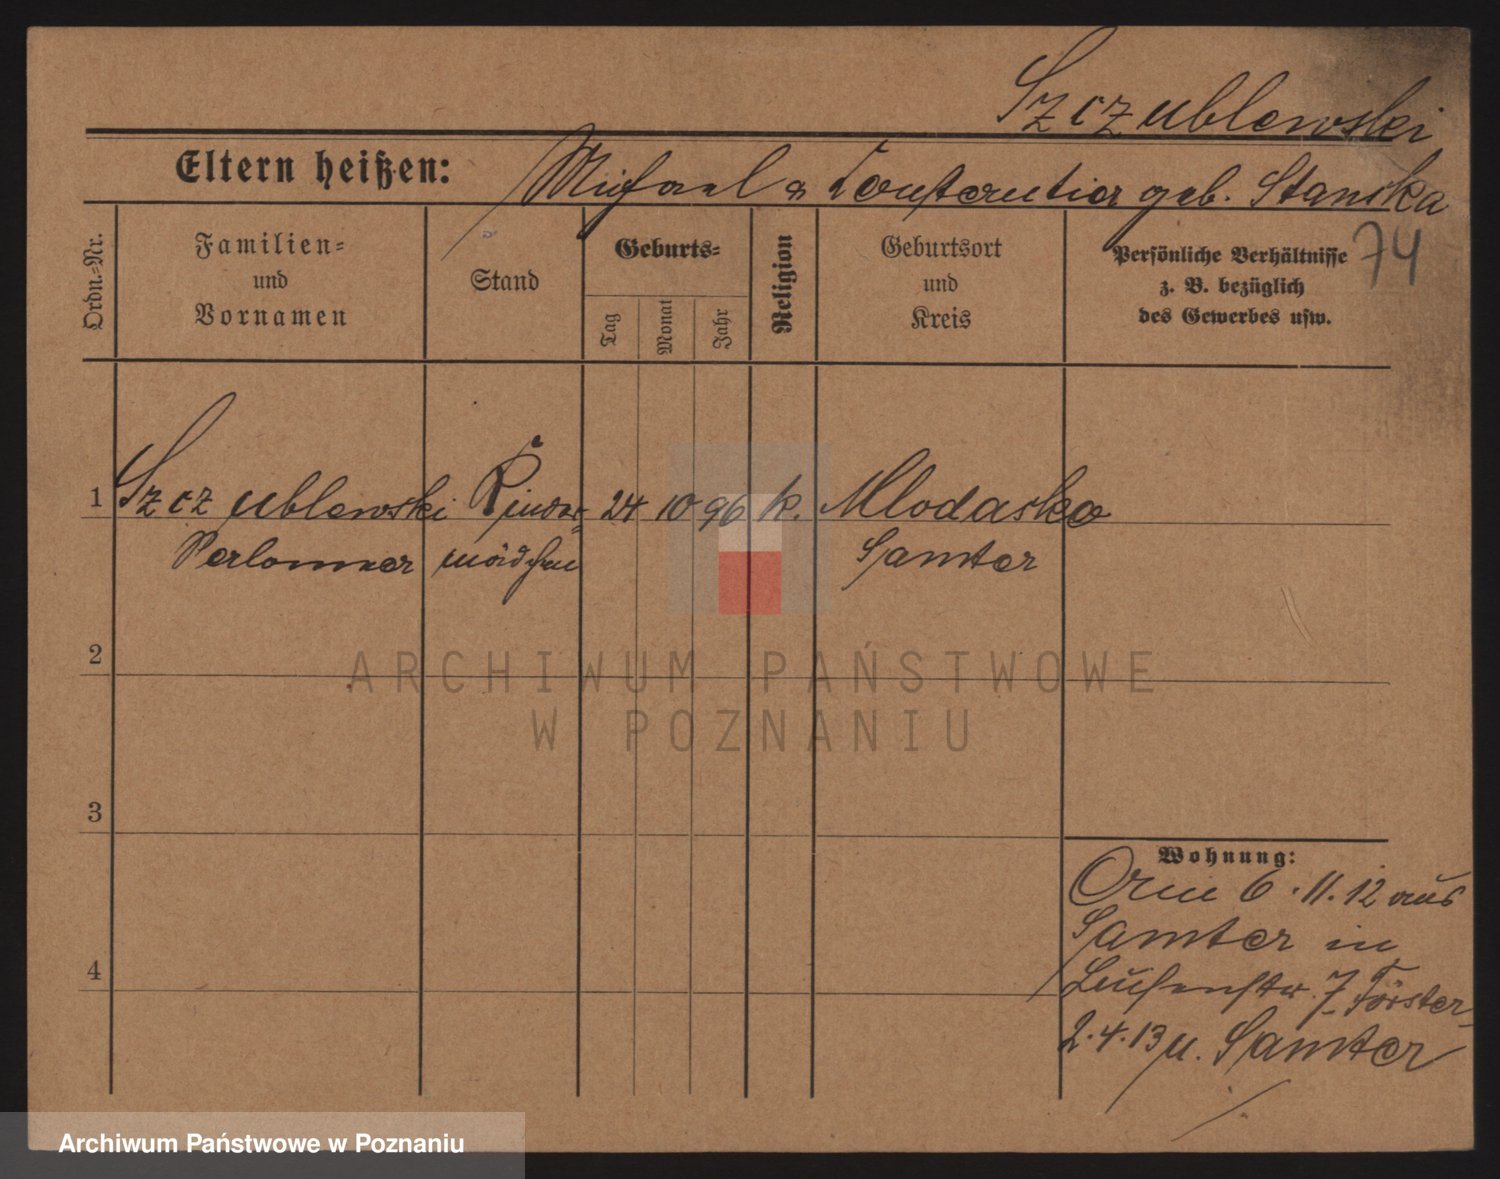 Szczublewski
Eltern heißen: Michael & Constantia geb. Stanska
74
Ordn.-Nr.
Familien-
und
Vornamen
Stand
Geburts-
Tag
Monat
Jahr
Religion
Geburtsort
und
Kreis
Persönliche Verhältnisse
z. B. bezüglich
des Gewerbes usw.
1 Szczublewski Kinder- 24 10 96 k. Mlodasko
mädchen Samter
2
3
4
Wohnung:
6.11.12 aus
Samter in
7 Förster
2.4.13 n. Samter
ARCHIWUM PAŃSTWOWE
W POZNANIU
Archiwum Państwowe w Poznaniu